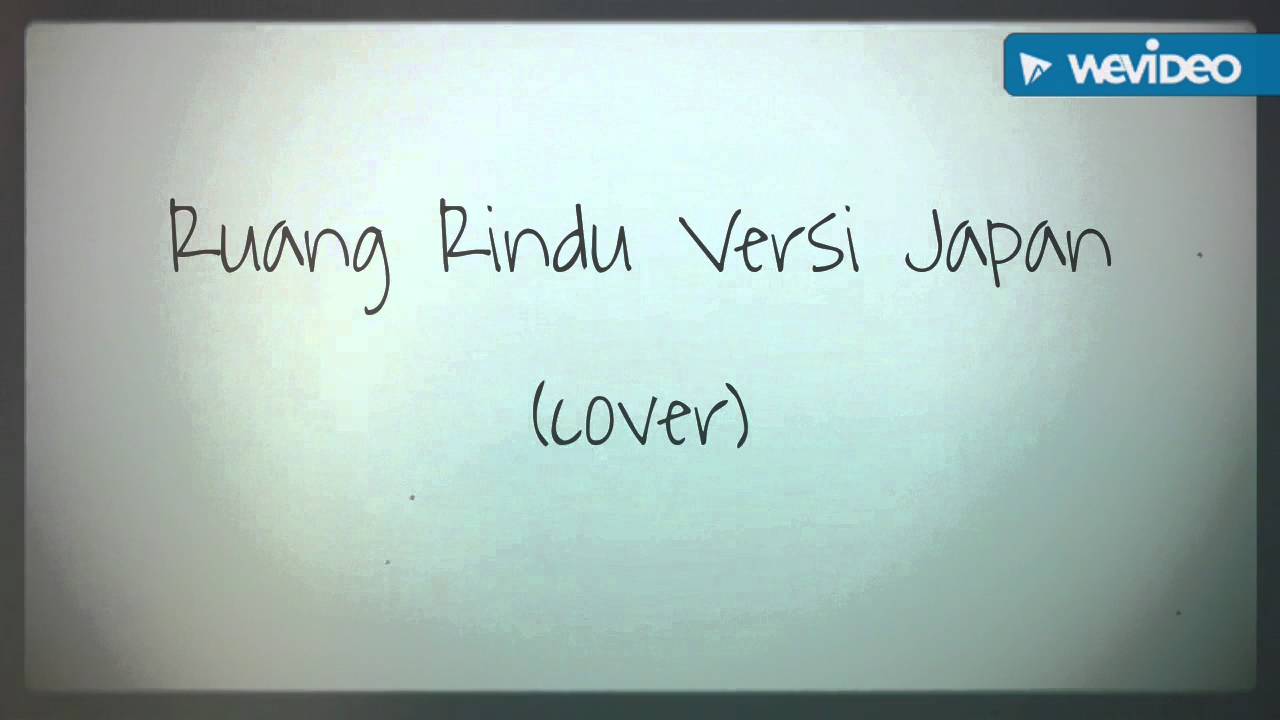 WEVIDEO
Ruang Rindu Versi Japan
(cover)